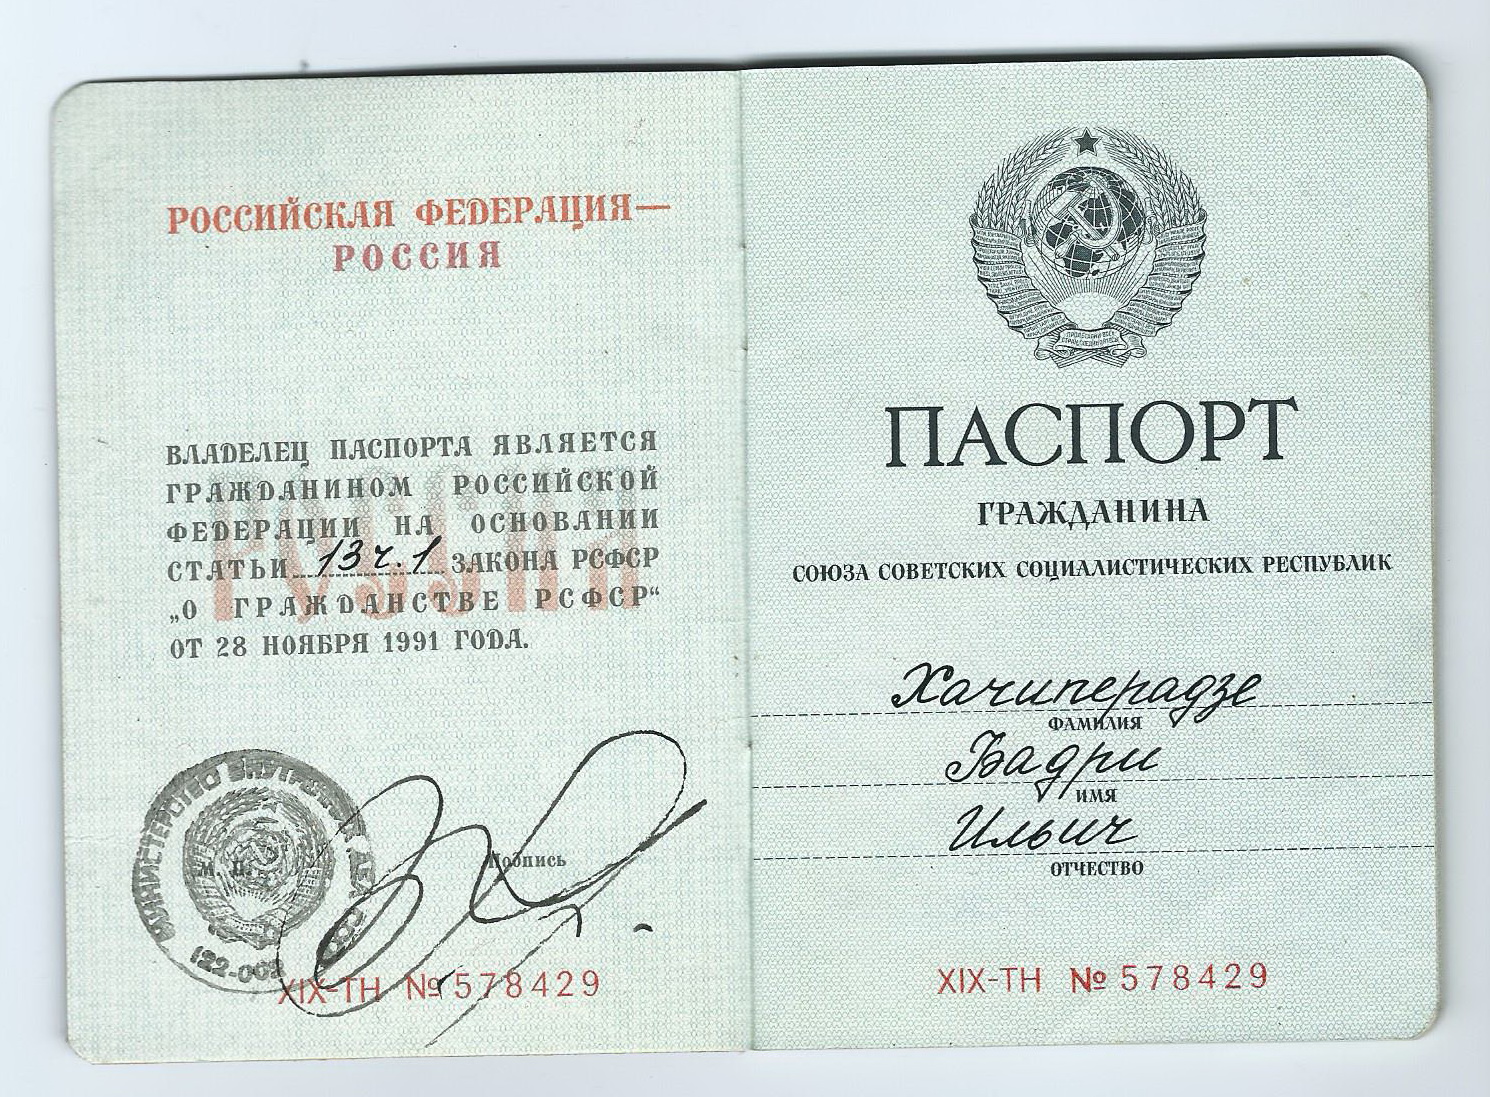 РОССИЙСКАЯ ФЕДЕРАЦИЯ—
РОССИЯ
ВЛАДЕЛЕЦ ПАСПОРТА ЯВЛЯЕТСЯ
ГРАЖДАНИНОМ РОССИЙСКОЙ
ФЕДЕРАЦИИ НА ОСНОВАНИИ
СТАТЬИ 13 ч. 1 ЗАКОНА РСФСР
„О ГРАЖДАНСТВЕ РСФСР“
ОТ 28 НОЯБРЯ 1991 ГОДА.
РУССИЯ
МИНИСТЕРСТВО ВНУТРЕННИХ ДЕЛ СССР
М. П.
Подпись
XIX-ТН № 578429
ПАСПОРТ
ГРАЖДАНИНА
СОЮЗА СОВЕТСКИХ СОЦИАЛИСТИЧЕСКИХ РЕСПУБЛИК
Хачиперадзе
ФАМИЛИЯ
Бадри
ИМЯ
Ильич
ОТЧЕСТВО
XIX-ТН № 578429